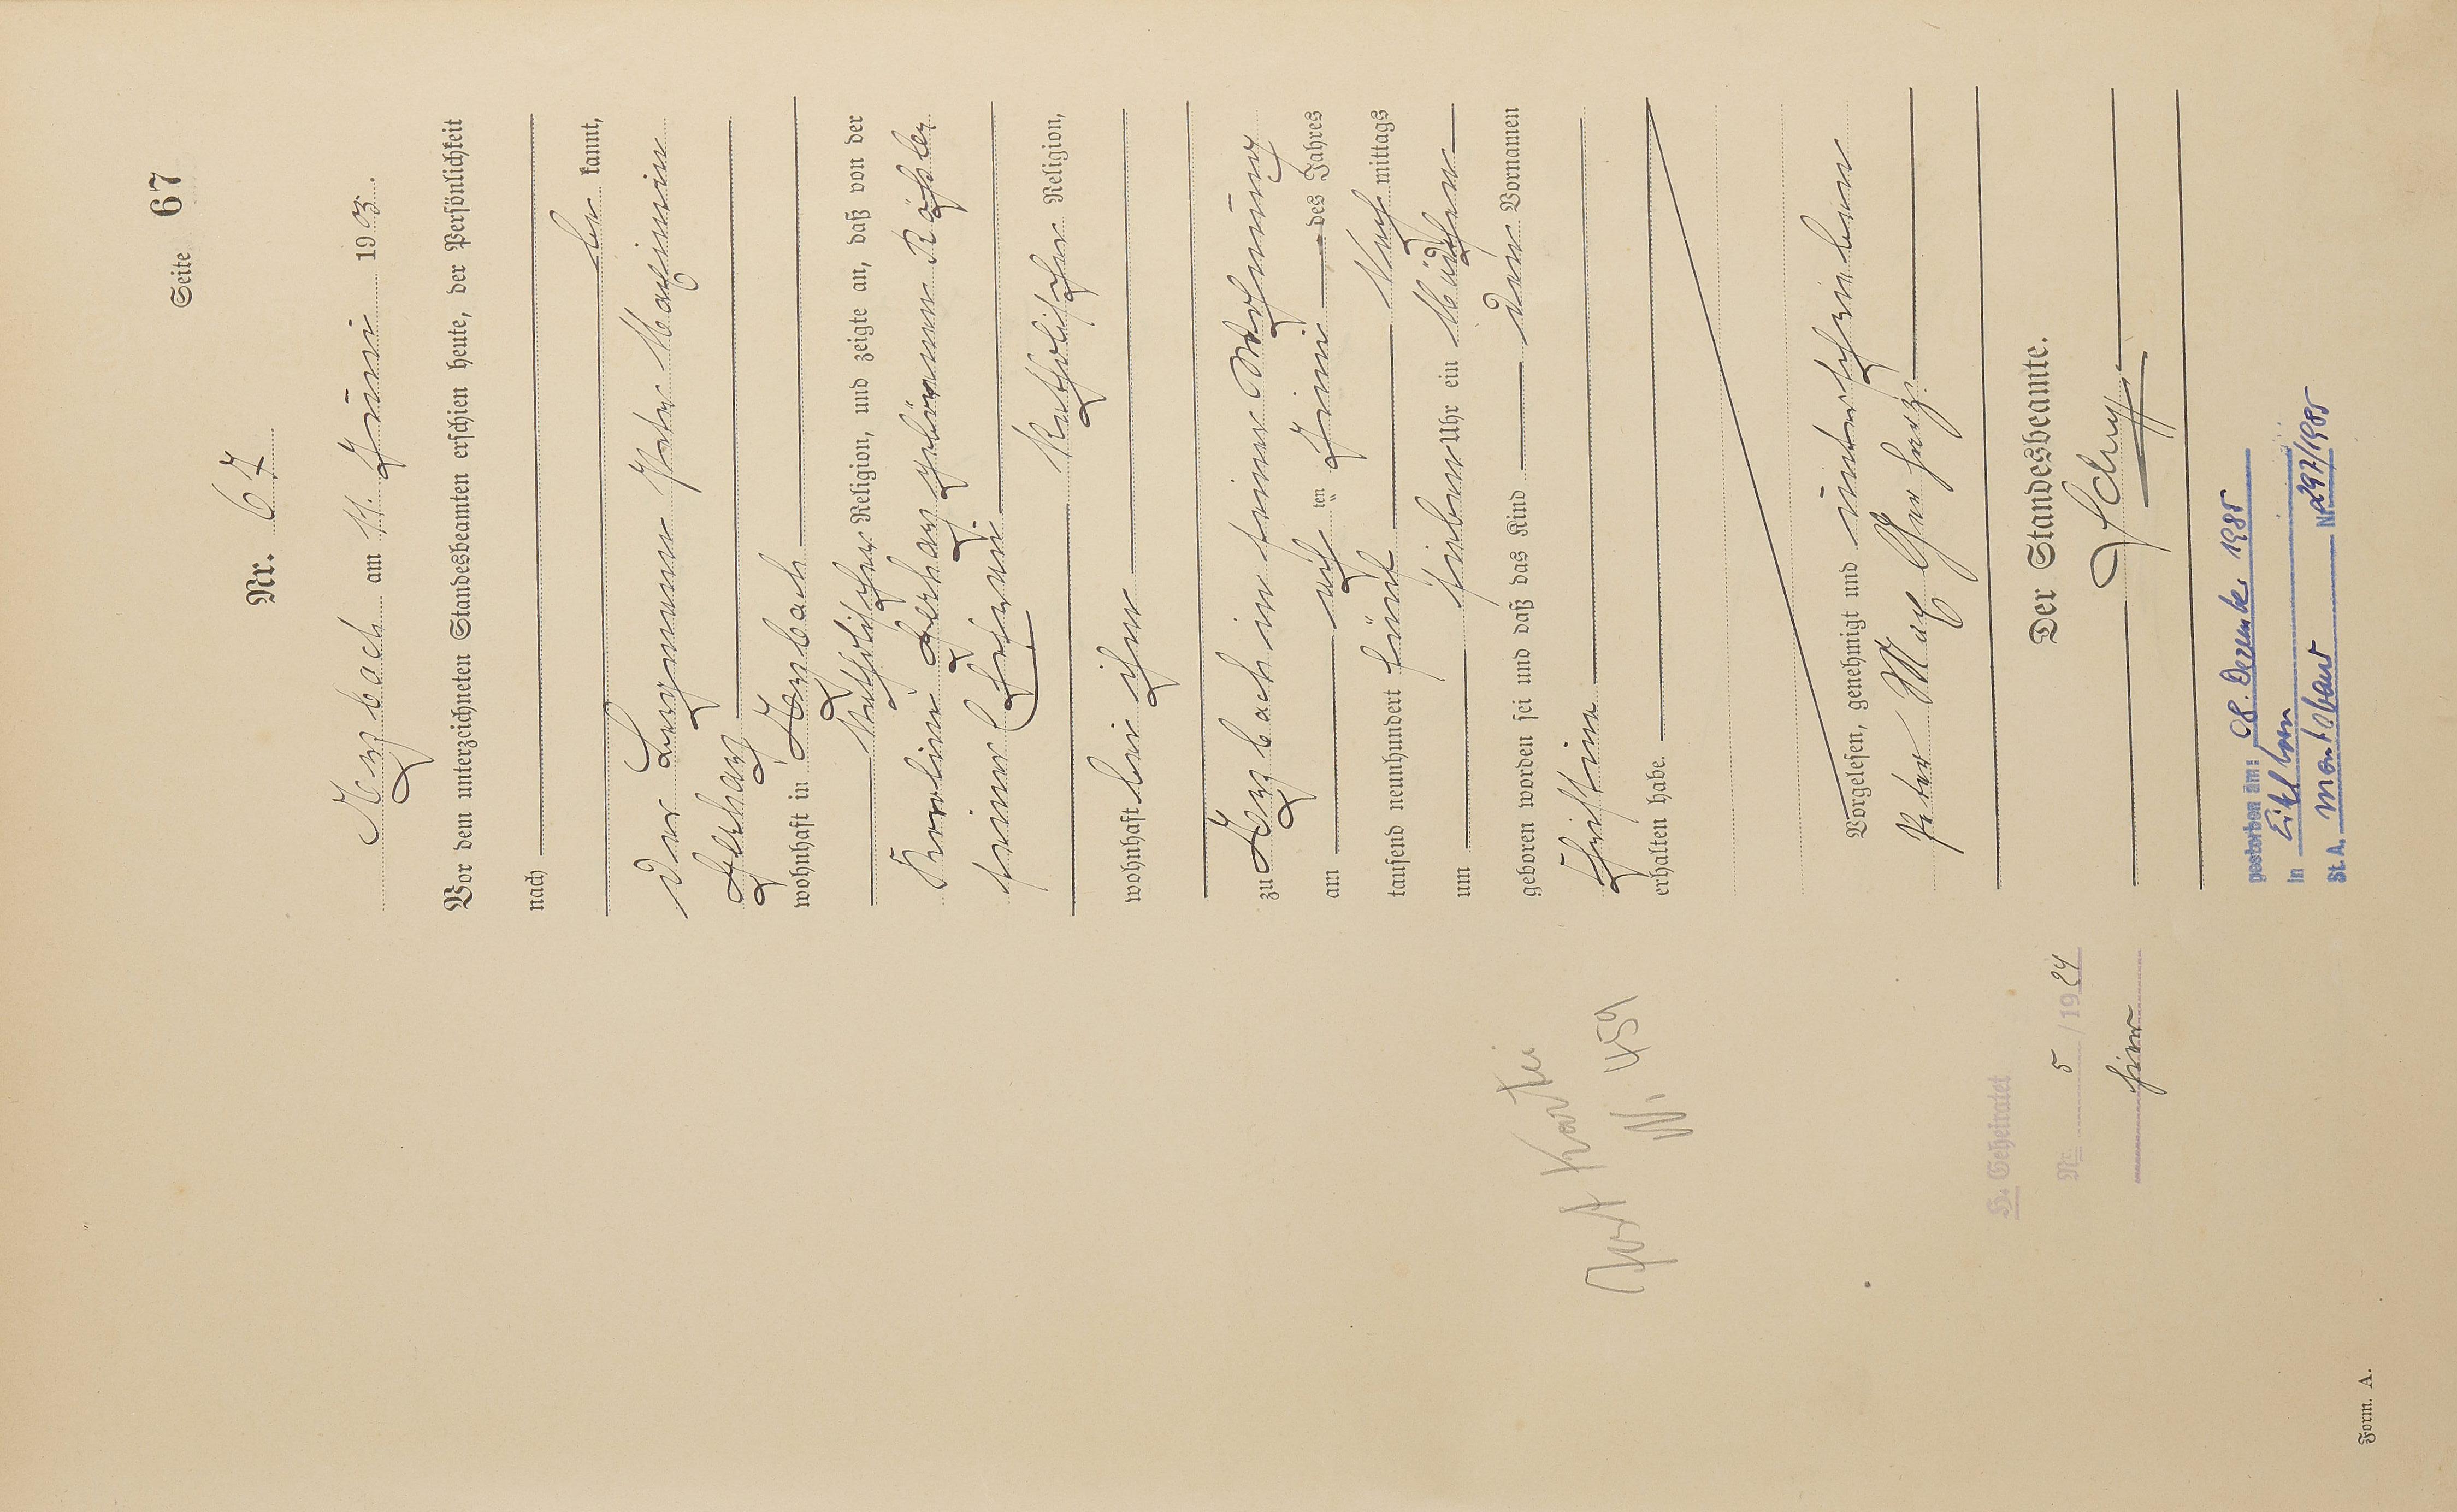 Seite 67
Nr. 67
Arzbach am 11. Juni 1905.
Vor dem unterzeichneten Standesbeamten erschien heute, der Persönlichkeit
nach
be kannt,
der Bergmann Peter Maximin
Gerharz
wohnhaft in Arzbach
katholischer Religion, und zeigte an, daß von der
Karolina Gerharz geborenen Roßler
seiner Ehefrau
katholischer Religion,
wohnhaft bei ihm
zu Arzbach in seiner Wohnung
am acht ten Juni des Jahres
tausend neunhundert fünf Nach mittags
um sieben Uhr ein Mädchen
geboren worden sei und daß das Kind den Vornamen
Christine
erhalten habe.
Vorgelesen, genehmigt und unterschrieben
Peter Max Gerharz
Der Standesbeamte.
Schuy
Kartei
N. 459
H. Geheiratet
Nr. 5 /1924
hier
gestorben am: 28. Dezember 1985
in Eitelborn
St. A. Montabaur Nr. 297/1985
Form. A.